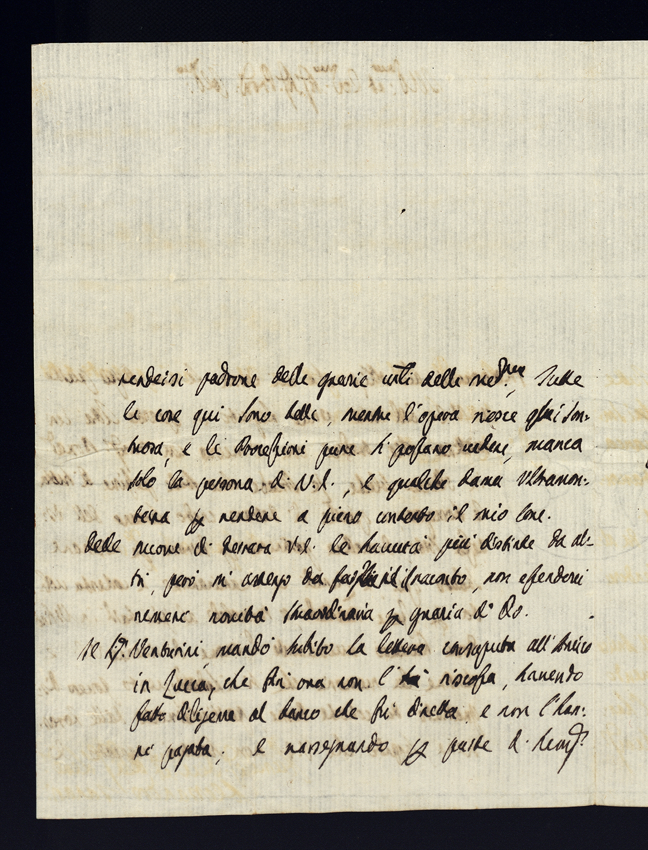 rendersi padrone delle grazie utili delle med.me Tutte
le cose qui sono belle, mentre l'opera riesce
tuosa, e le Processioni pure si possano vedere, manca
solo la persona di V.S., e qualche dama oltramon-
tana p rendere a pieno contento il mio core.
Delle nuove di Ferrara V.S. le haverà più distinte da al-
tri, però mi astengo da il racconto, non essendovi
nemeno novità straordinaria p grazia di Do.
Il Sr. Venturini mandò subito la lettera all'Amico
in Lucca, che fin ora non l'ha riscossa, havendo
fatto diligenze al banco che fu diretta, e non l'han-
no pagata; e rassegnando p parte di